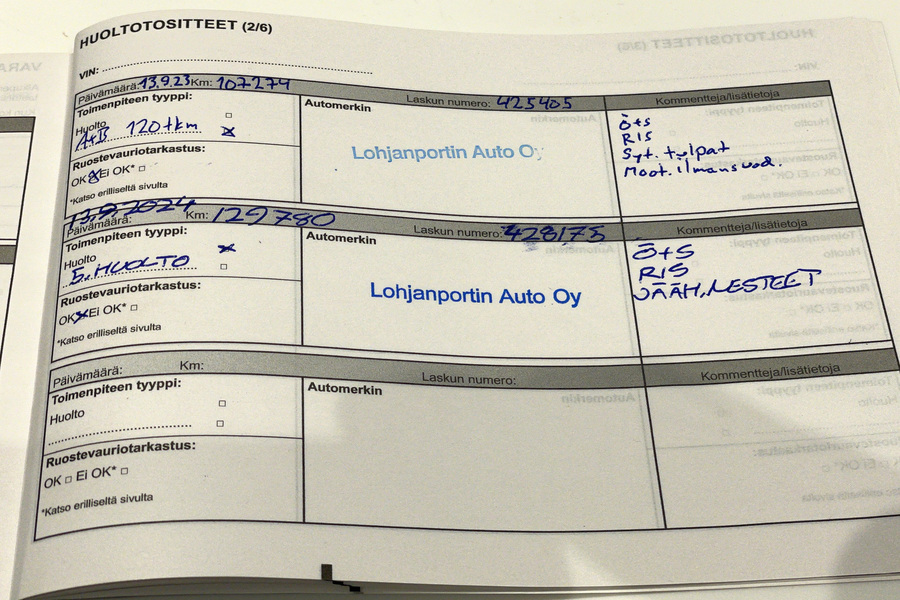 HUOLTOTOSITTEET (2/6)
VIN:
Päivämäärä: 13.9.23 Km: 107274 Laskun numero: 425405 Kommentteja/lisätietoja
Toimenpiteen tyyppi: Automerkin
Huolto
A+B 120tkm
Lohjanportin Auto Oy
Ruostevauriotarkastus:
OK Ei OK*
*Katso erilliseltä sivulta
Ö+S
RIS
Syt. tulpat
Moot. ilmansuod.
13.9.2024
Päivämäärä: Km: 129780 Laskun numero: 428175 Kommentteja/lisätietoja
Toimenpiteen tyyppi: Automerkin
Huolto
5. HUOLTO
Lohjanportin Auto Oy
Ruostevauriotarkastus:
OK Ei OK*
*Katso erilliseltä sivulta
Ö+S
RIS
JÄÄH. NESTEET
Päivämäärä: Km: Laskun numero: Kommentteja/lisätietoja
Toimenpiteen tyyppi: Automerkin
Huolto
Ruostevauriotarkastus:
OK Ei OK*
*Katso erilliseltä sivulta